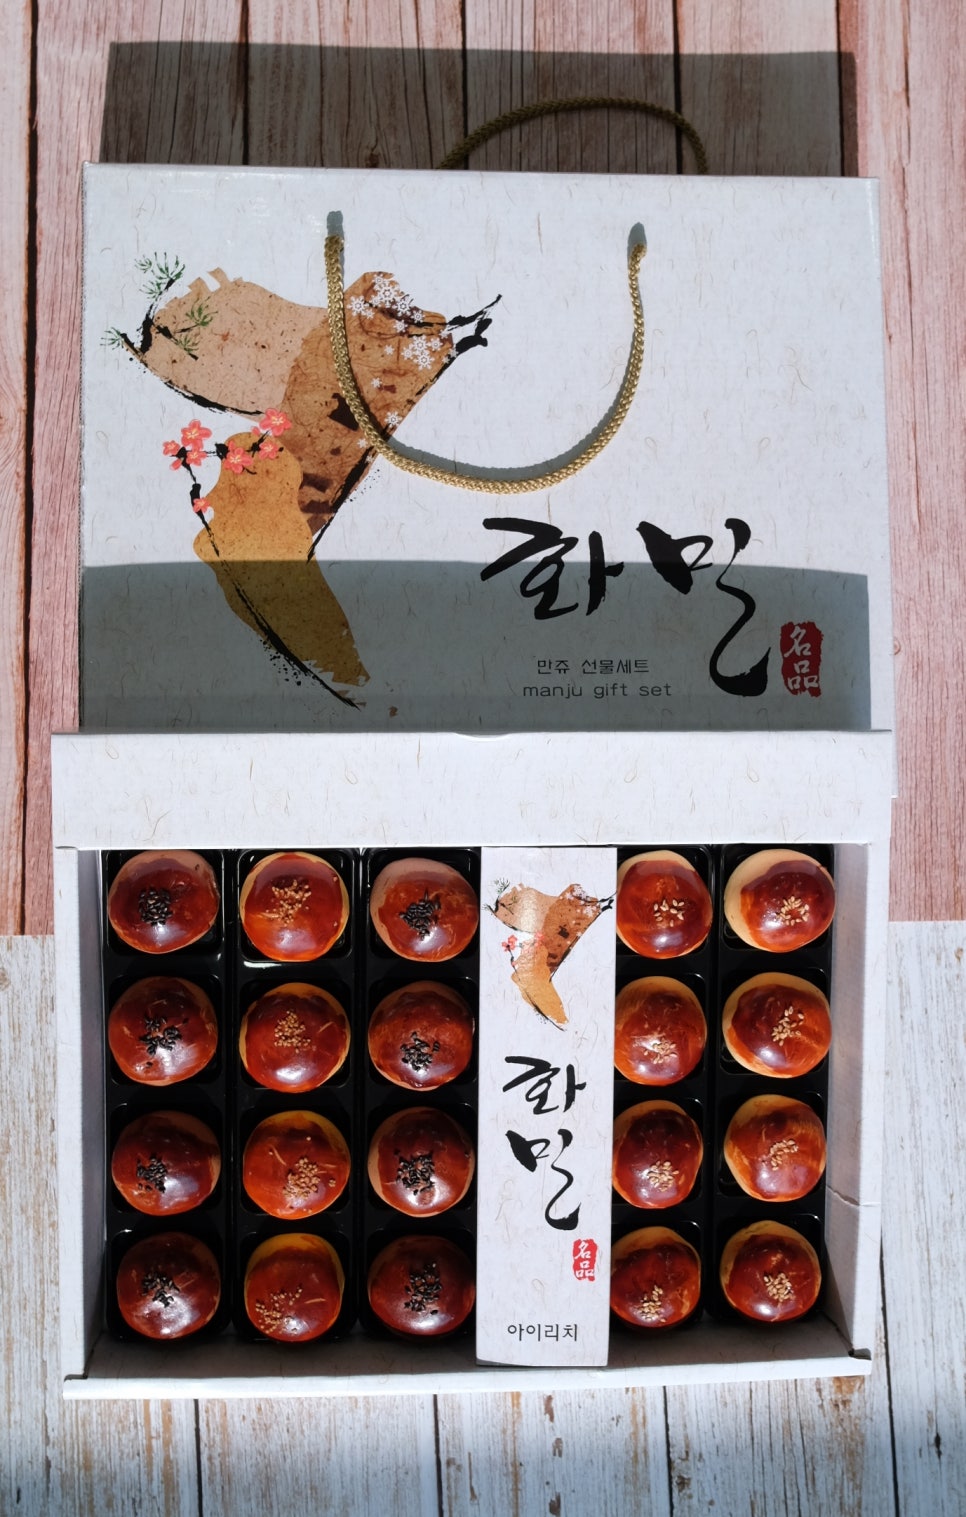 화밀
名品
만쥬 선물세트
manju gift set
화
밀
名品
아이리치